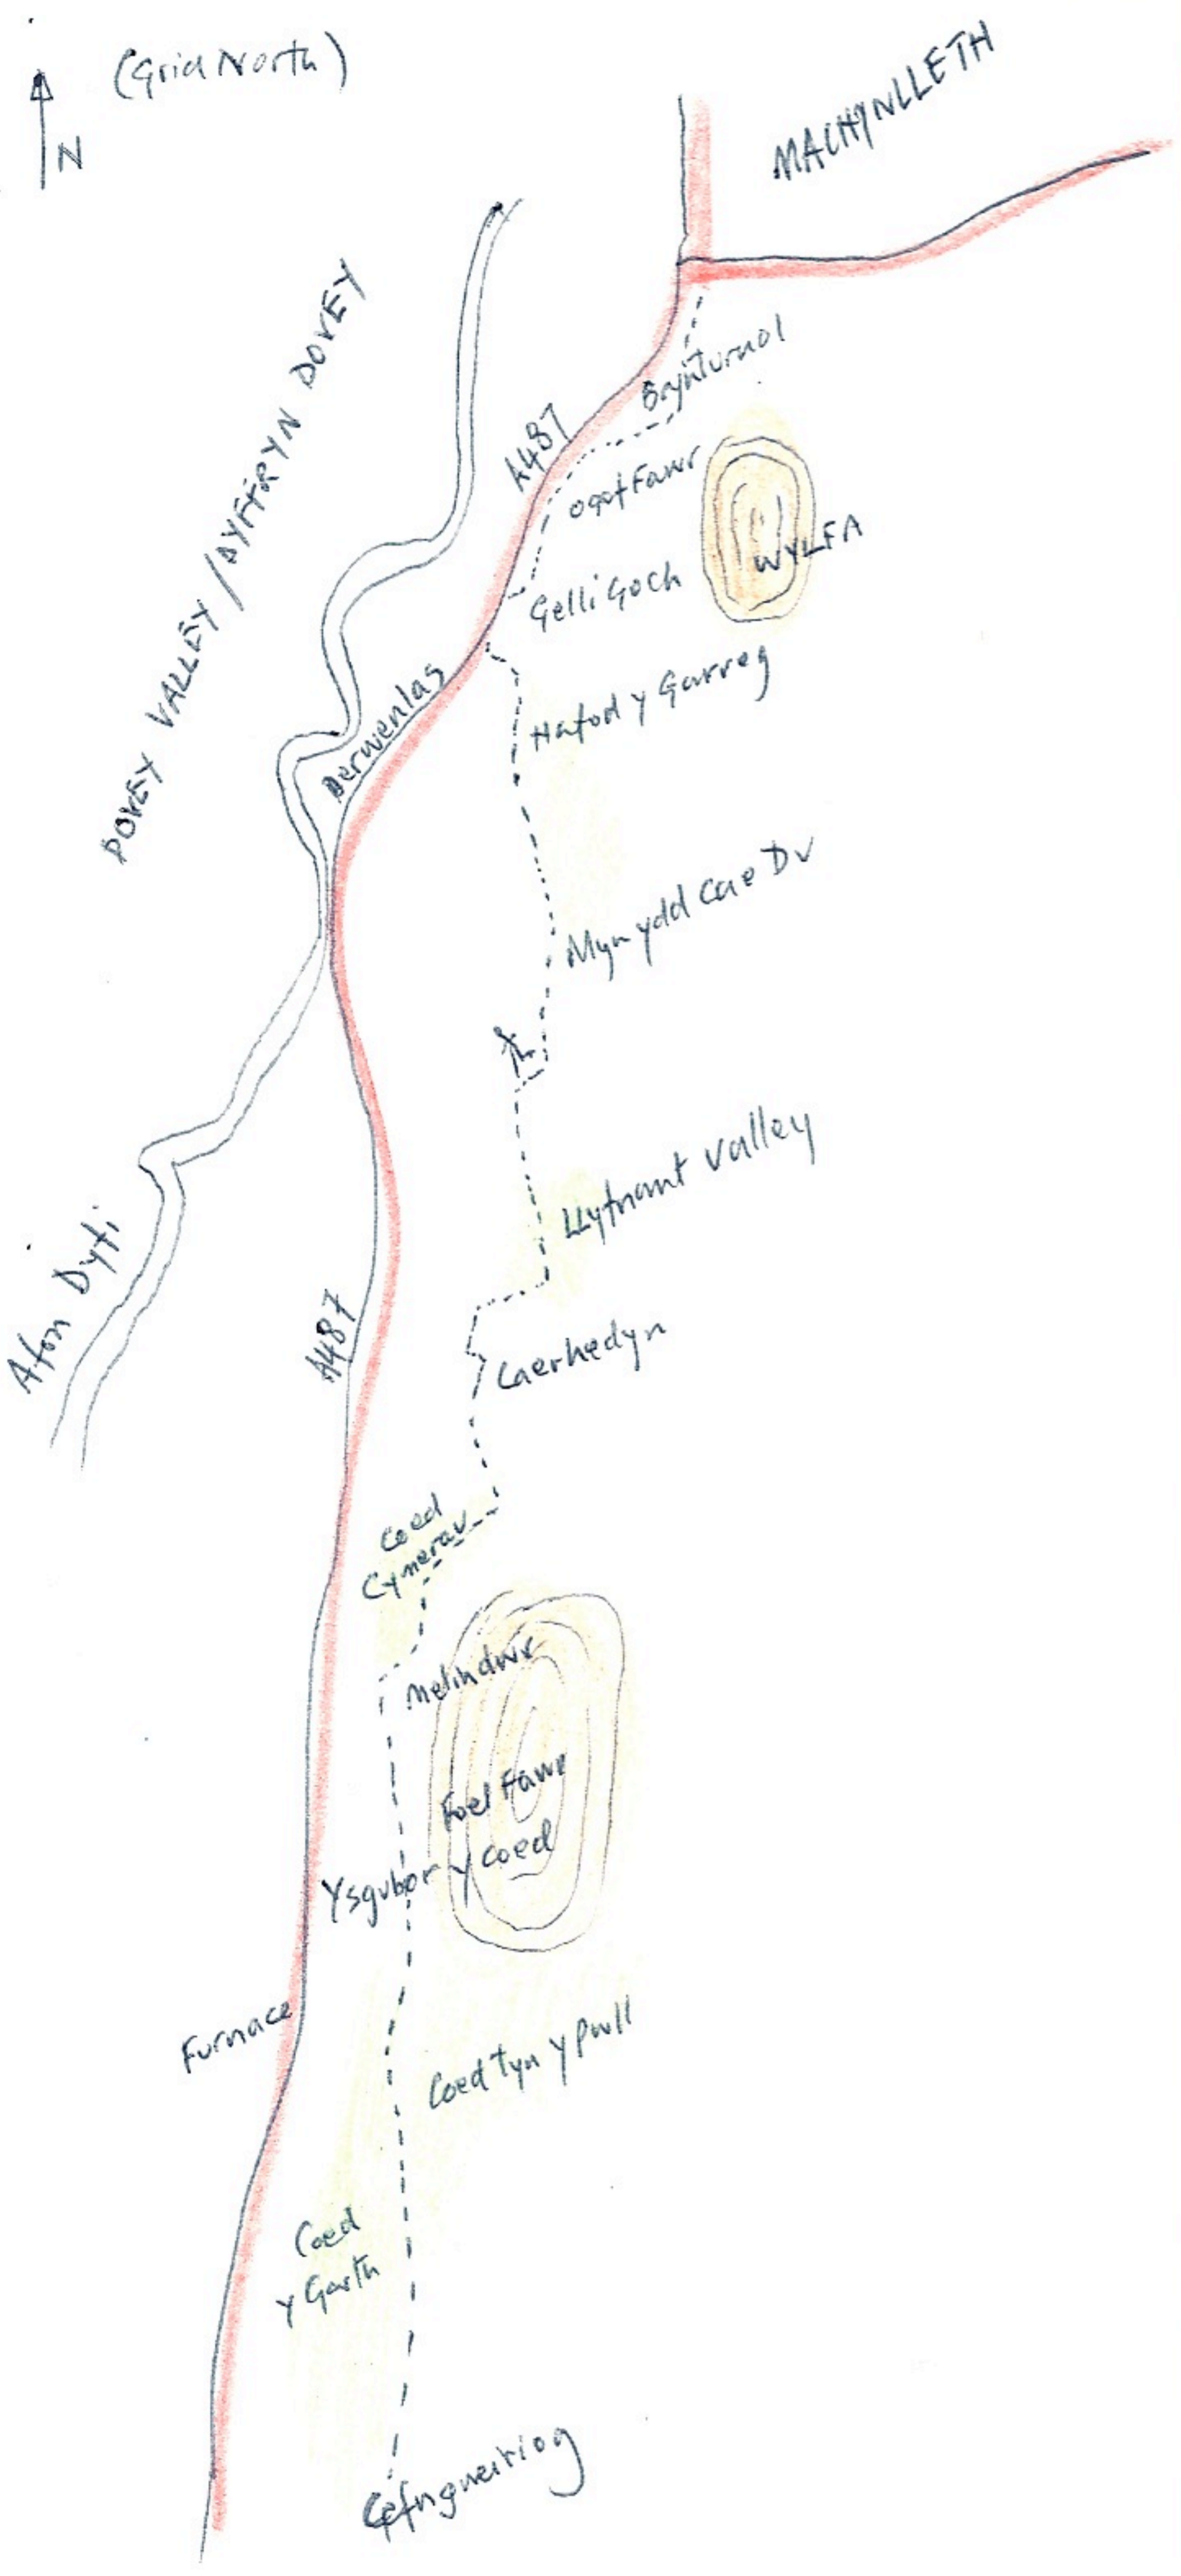 (Grid North)
N
MACHYNLLETH
DOVEY VALLEY / DYFFRYN DOVEY
Brynturnol
A487
Ogof Fawr
WYLFA
Gelli Goch
Hafod y Garreg
Derwenlas
Mynydd Cae Dv
Llyfnant Valley
Afon Dyfi
A487
Caerhedyn
Coed
Cymerau
Melindwr
Foel Fawr
Ysgubor y Coed
Furnace
Coed Tyn y Pwll
Coed
y Garth
Cefngweiriog